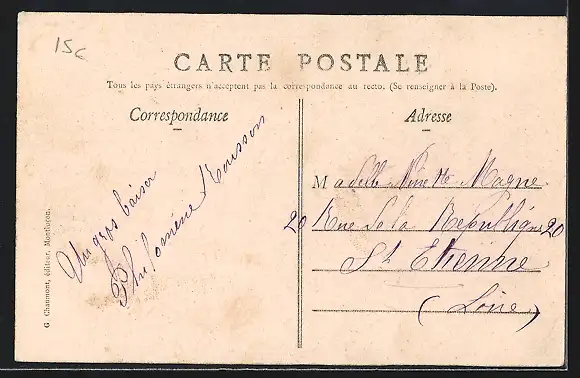 15c
CARTE POSTALE
Tous les pays étrangers n'acceptent pas la correspondance au recto. (Se renseigner à la Poste).
Correspondance
Adresse
Un gros baiser
Philomène Rousson
Madelle Ninette Magne
20 Rue de la République 20
St Etienne
(Loire)
G. Chaumont, éditeur, Montluçon.